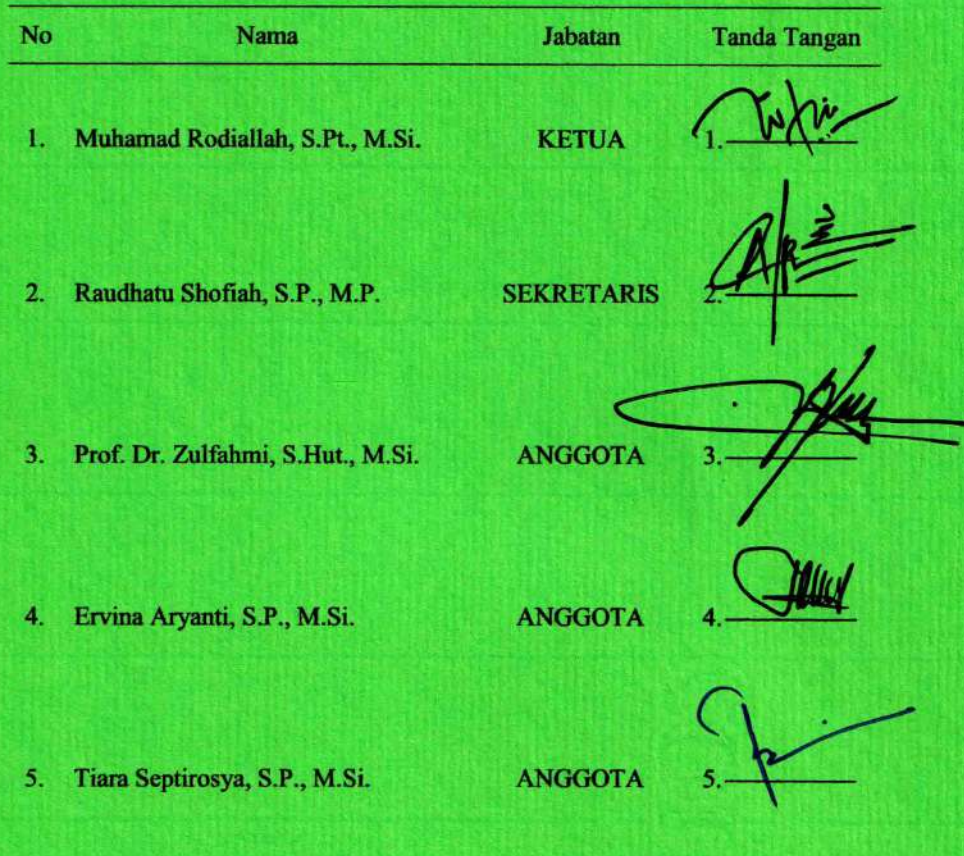 No Nama Jabatan Tanda Tangan
1. Muhamad Rodiallah, S.Pt., M.Si. KETUA 1.
2. Raudhatu Shofiah, S.P., M.P. SEKRETARIS 2.
3. Prof. Dr. Zulfahmi, S.Hut., M.Si. ANGGOTA 3.
4. Ervina Aryanti, S.P., M.Si. ANGGOTA 4.
5. Tiara Septirosya, S.P., M.Si. ANGGOTA 5.